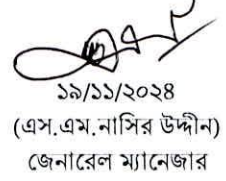 ১৯/১১/২০২৪
(এস.এম.নাসির উদ্দীন)
জেনারেল ম্যানেজার